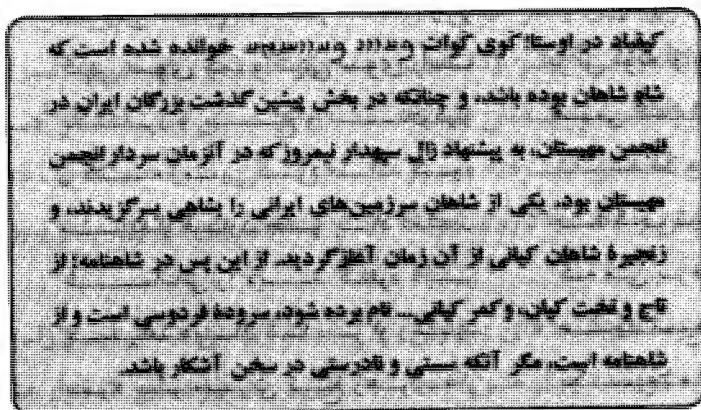 کیقباد در اوستا: کوی کوات خوانده شده است که
شاهِ شاهان بوده باشد، و چنانکه در بخش پیشین گذشت بزرگان ایران در
انجمن مهستان، به پیشنهاد زال سپهدار نیمروز که در آنزمان سردار انجمن
مهستان بود، یکی از شاهان سرزمین‌های ایرانی را بشاهی برگزیدند، و
زنجیرهٔ شاهان کیانی از آن زمان آغاز گردید. از این پس در شاهنامه؛ از
تاج و تخت کیان، و کمر کیانی... نام برده شود، سرودهٔ فردوسی است و از
شاهنامه است، مگر آنکه سستی و نادرستی در سخن آشکار باشد.